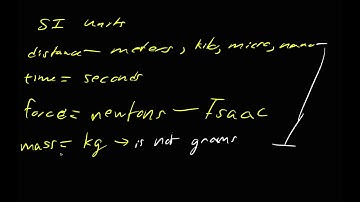 SI units
distance- meters, kilo, micro, nano-
time= seconds
force= newtons - Isaac
mass= kg → is not grams